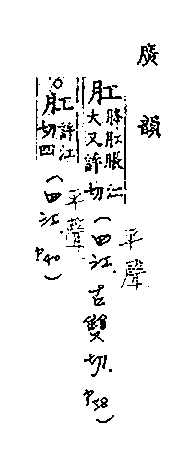 廣韻
肛 胮肛脹大又許江切(四江.古雙切.P38)
平聲
○肛 許江切四(四江.P40)
平聲